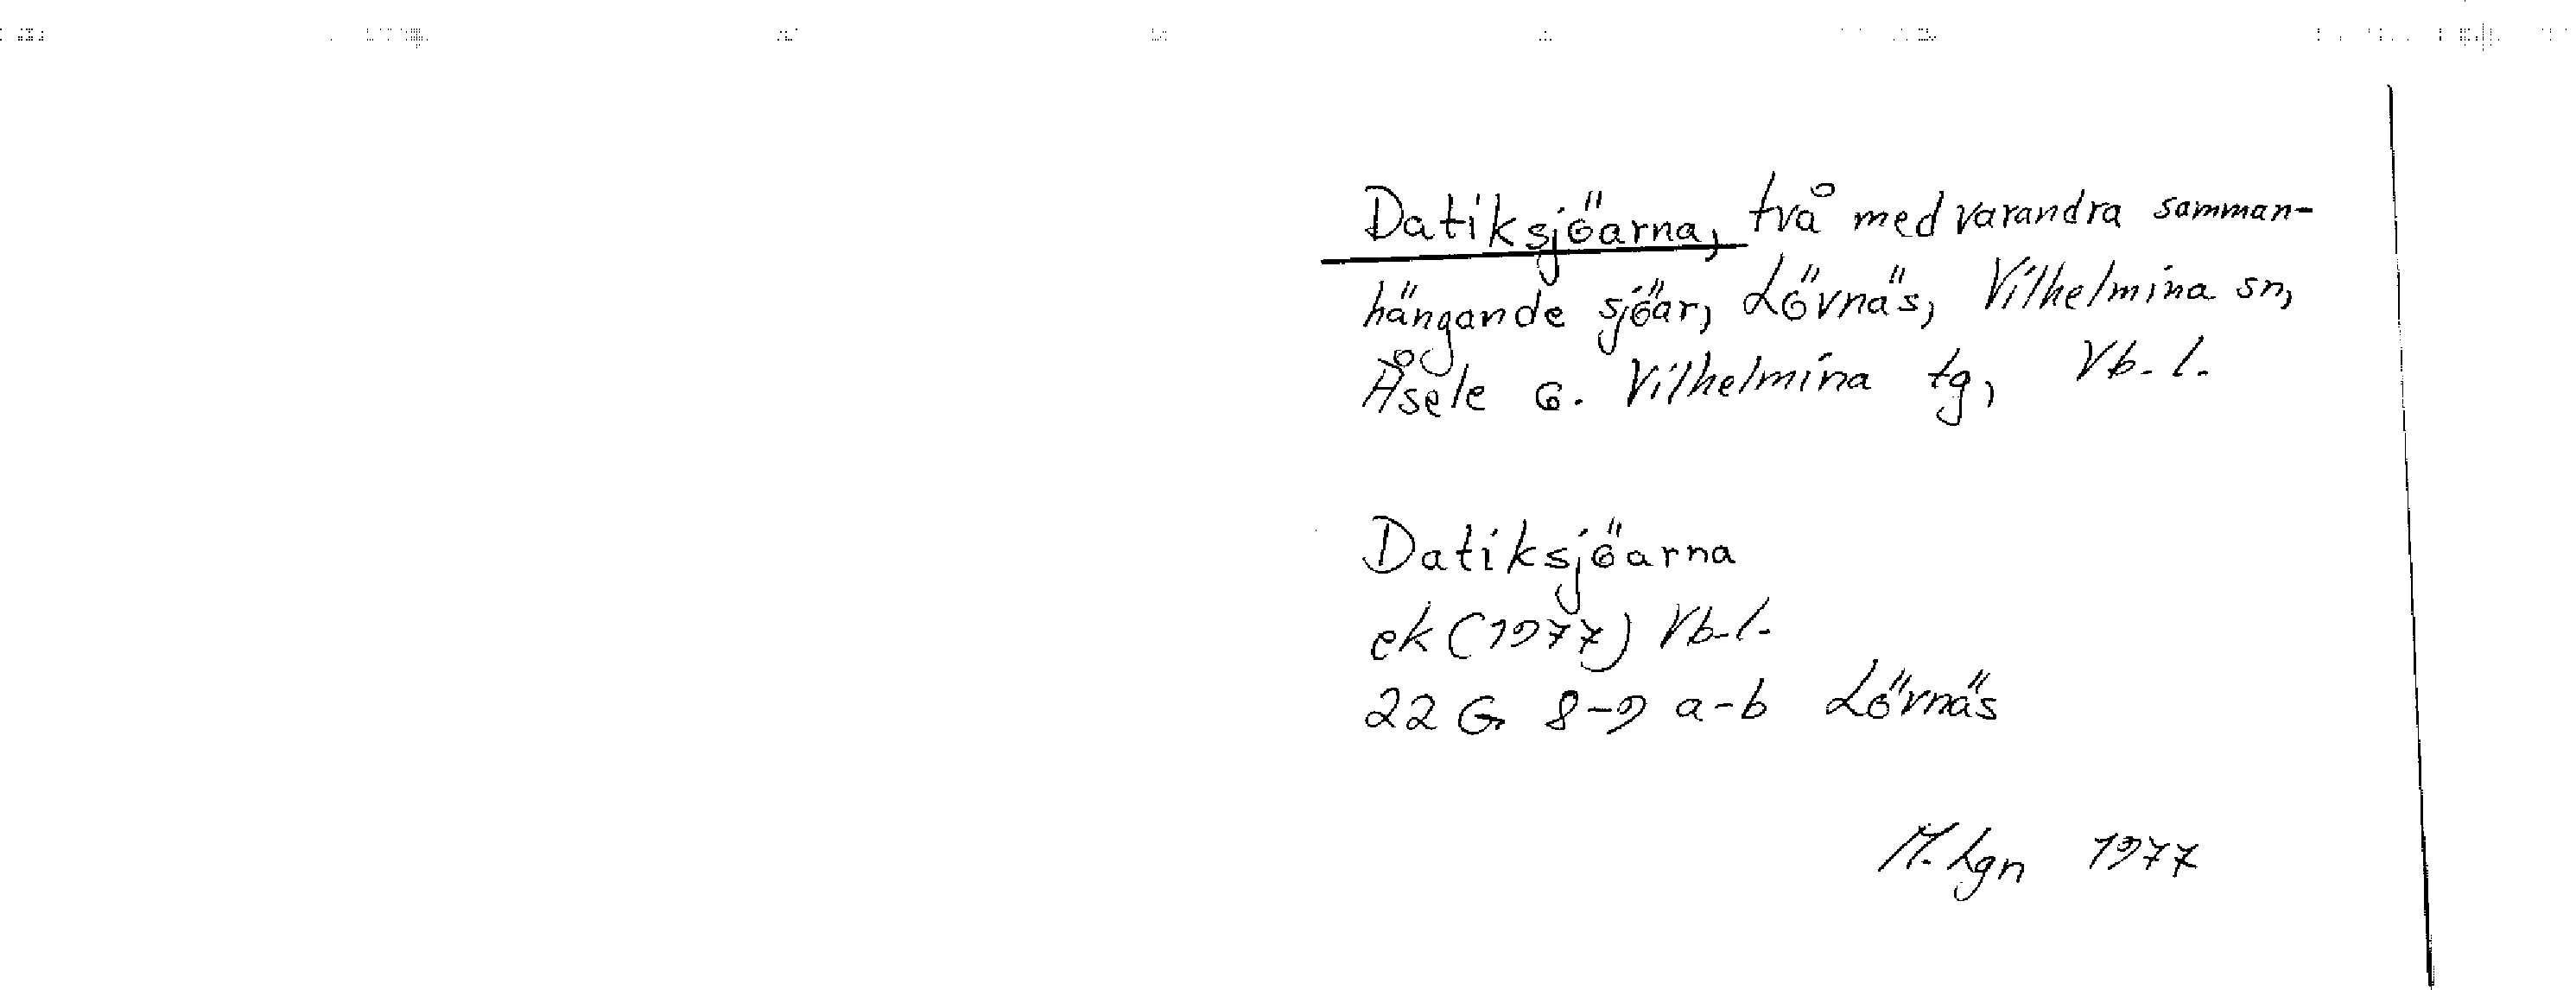 Datiksjöarna, två med varandra samman-
hängande sjöar, Lövnäs, Vilhelmina sn,
Åsele o. Vilhelmina tg, Vb. l.
Datiksjöarna
ek (1977) Vb. l.
22 G 8-9 a-b Lövnäs
M. Lgn 1977